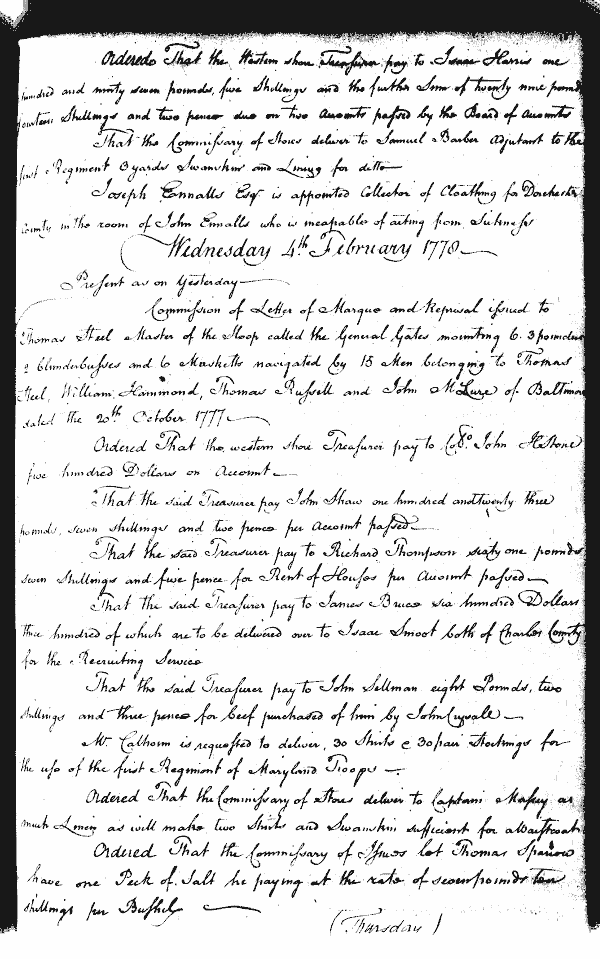 Ordered That the Western shore Treasurer pay to Isaac Harris one
hundred and ninty seven pounds, five Shillings and the further Sum of twenty nine pounds
fourteen Shillings and two pence due on two Accounts passed by the Board of Accounts
That the Commissary of Stores deliver to Samuel Barber Adjutant to the
first Regiment 3 yards Swanskin and Lining for ditto
Joseph Ennalls Esqr is appointed Collector of Cloathing for Dorchester
County in the room of John Ennalls who is incapable of acting from Sickness
Wednesday 4th February 1778
Present as on Yesterday
Commission of Letter of Marque and Reprisal issued to
Thomas Steel Master of the Sloop called the General Gates mounting 6. 3 pounders
2 blunderbusses and 6 Musketts navigated by 15 Men belonging to Thomas
Steel, William Hammond, Thomas Russell and John McLure of Baltimore
dated the 20th October 1777
Ordered That the western shore Treasurer pay to Colo. John H. Stone
five hundred Dollars on Account
That the said Treasurer pay John Shaw one hundred and twenty three
pounds, seven shillings and two pence per Account passed
That the said Treasurer pay to Richard Thompson sixty one pounds
seven Shillings and five pence for Rent of Houses per Account passed
That the said Treasurer pay to James Bruce six hundred Dollars
three hundred of which are to be delivered over to Isaac Smoot both of Charles County
for the Recruiting Service
That the said Treasurer pay to John Sellman eight Pounds, two
shillings and three pence for beef purchased of him by John
Mr. Calhoun is requested to deliver, 30 Shirts & 30 pair Stockings for
the use of the first Regiment of Maryland Troops
Ordered That the Commissary of Stores deliver to Captain Massey as
much Linen as will make two Shirts and Swanskin sufficient for a Waistcoat
Ordered That the Commissary of Issues let Thomas Sparrow
have one Peck of Salt he paying at the rate of seven pounds ten
shillings per Bushel
(Thursday)